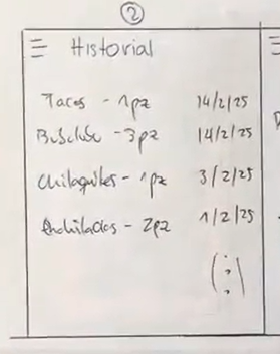 2
Historial
Tacos - 1pz 14/2/25
- 3pz 14/2/25
Chilaquiles - 1pz 3/2/25
Enchiladas - 2pz 1/2/25